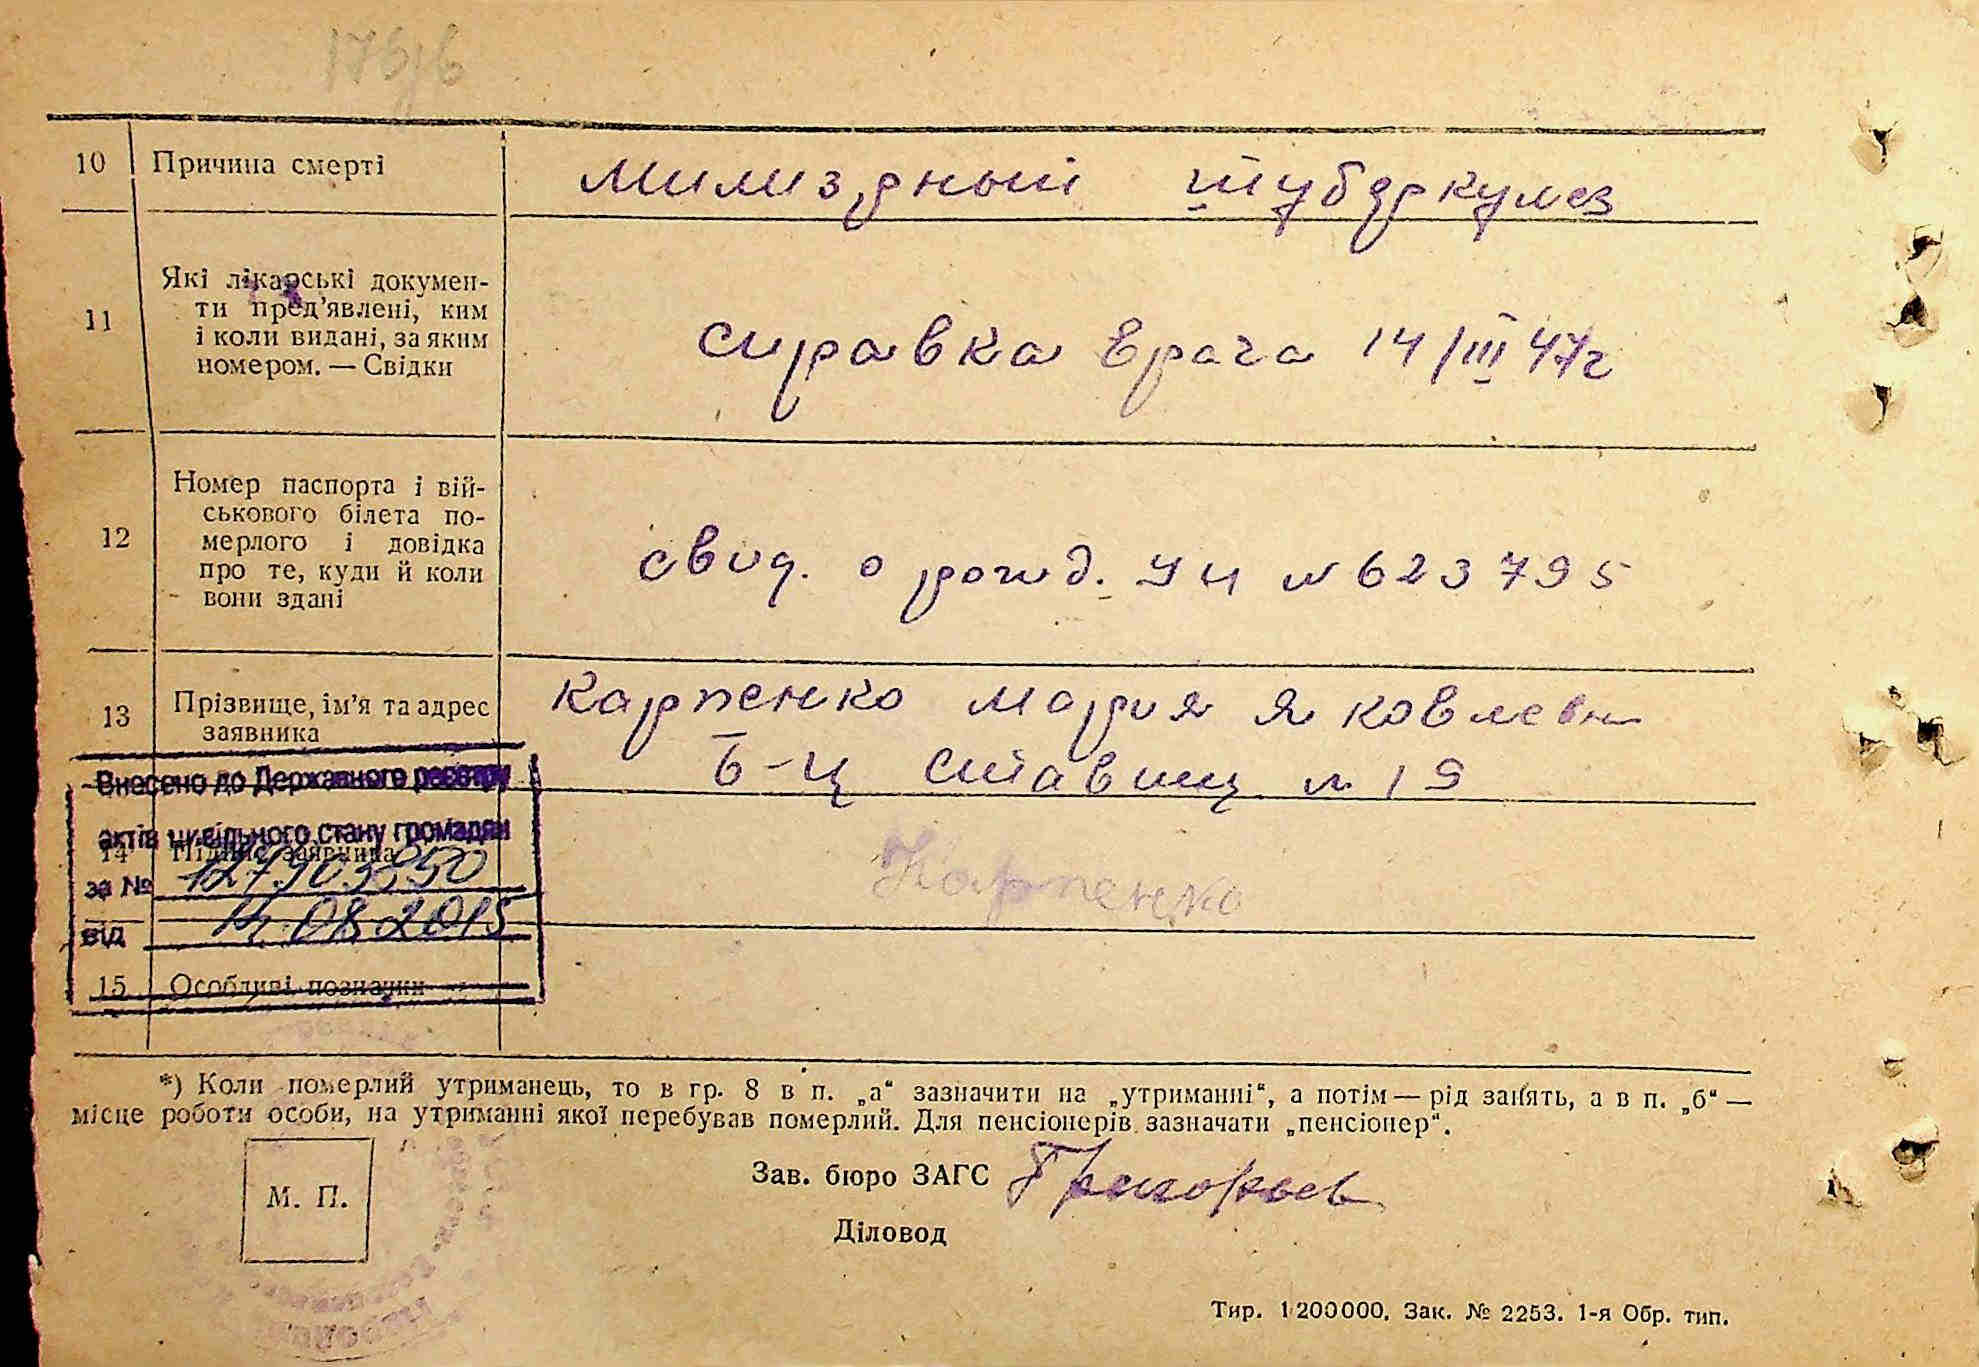 176/6
10 Причина смерті
Милиэрный туберкулез
11 Які лікарські докумен-
ти пред’явлені, ким
і коли видані, за яким
номером. — Свідки
справка врача 14/III 47г
12 Номер паспорта і вій-
ськового білета по-
мерлого і довідка
про те, куди й коли
вони здані
свид. о рожд. УЧ № 623795
13 Прізвище, ім’я та адрес
заявника
Карпенко Мария Яковлевн
Б-Ц Ставищ № 19
Внесено до Державного реєстру
актів цивільного стану громадян
14 Підпис заявника
Карпенко
за №
від 14.08.2015
15 Особливі позначки
*) Коли померлий утриманець, то в гр. 8 в п. „а“ зазначити на „утриманні“, а потім — рід занять, а в п. „б“ —
місце роботи особи, на утриманні якої перебував померлий. Для пенсіонерів зазначати „пенсіонер“.
М. П.
Зав. бюро ЗАГС Григорьев
Діловод
Тир. 1200000. Зак. № 2253. 1-я Обр. тип.